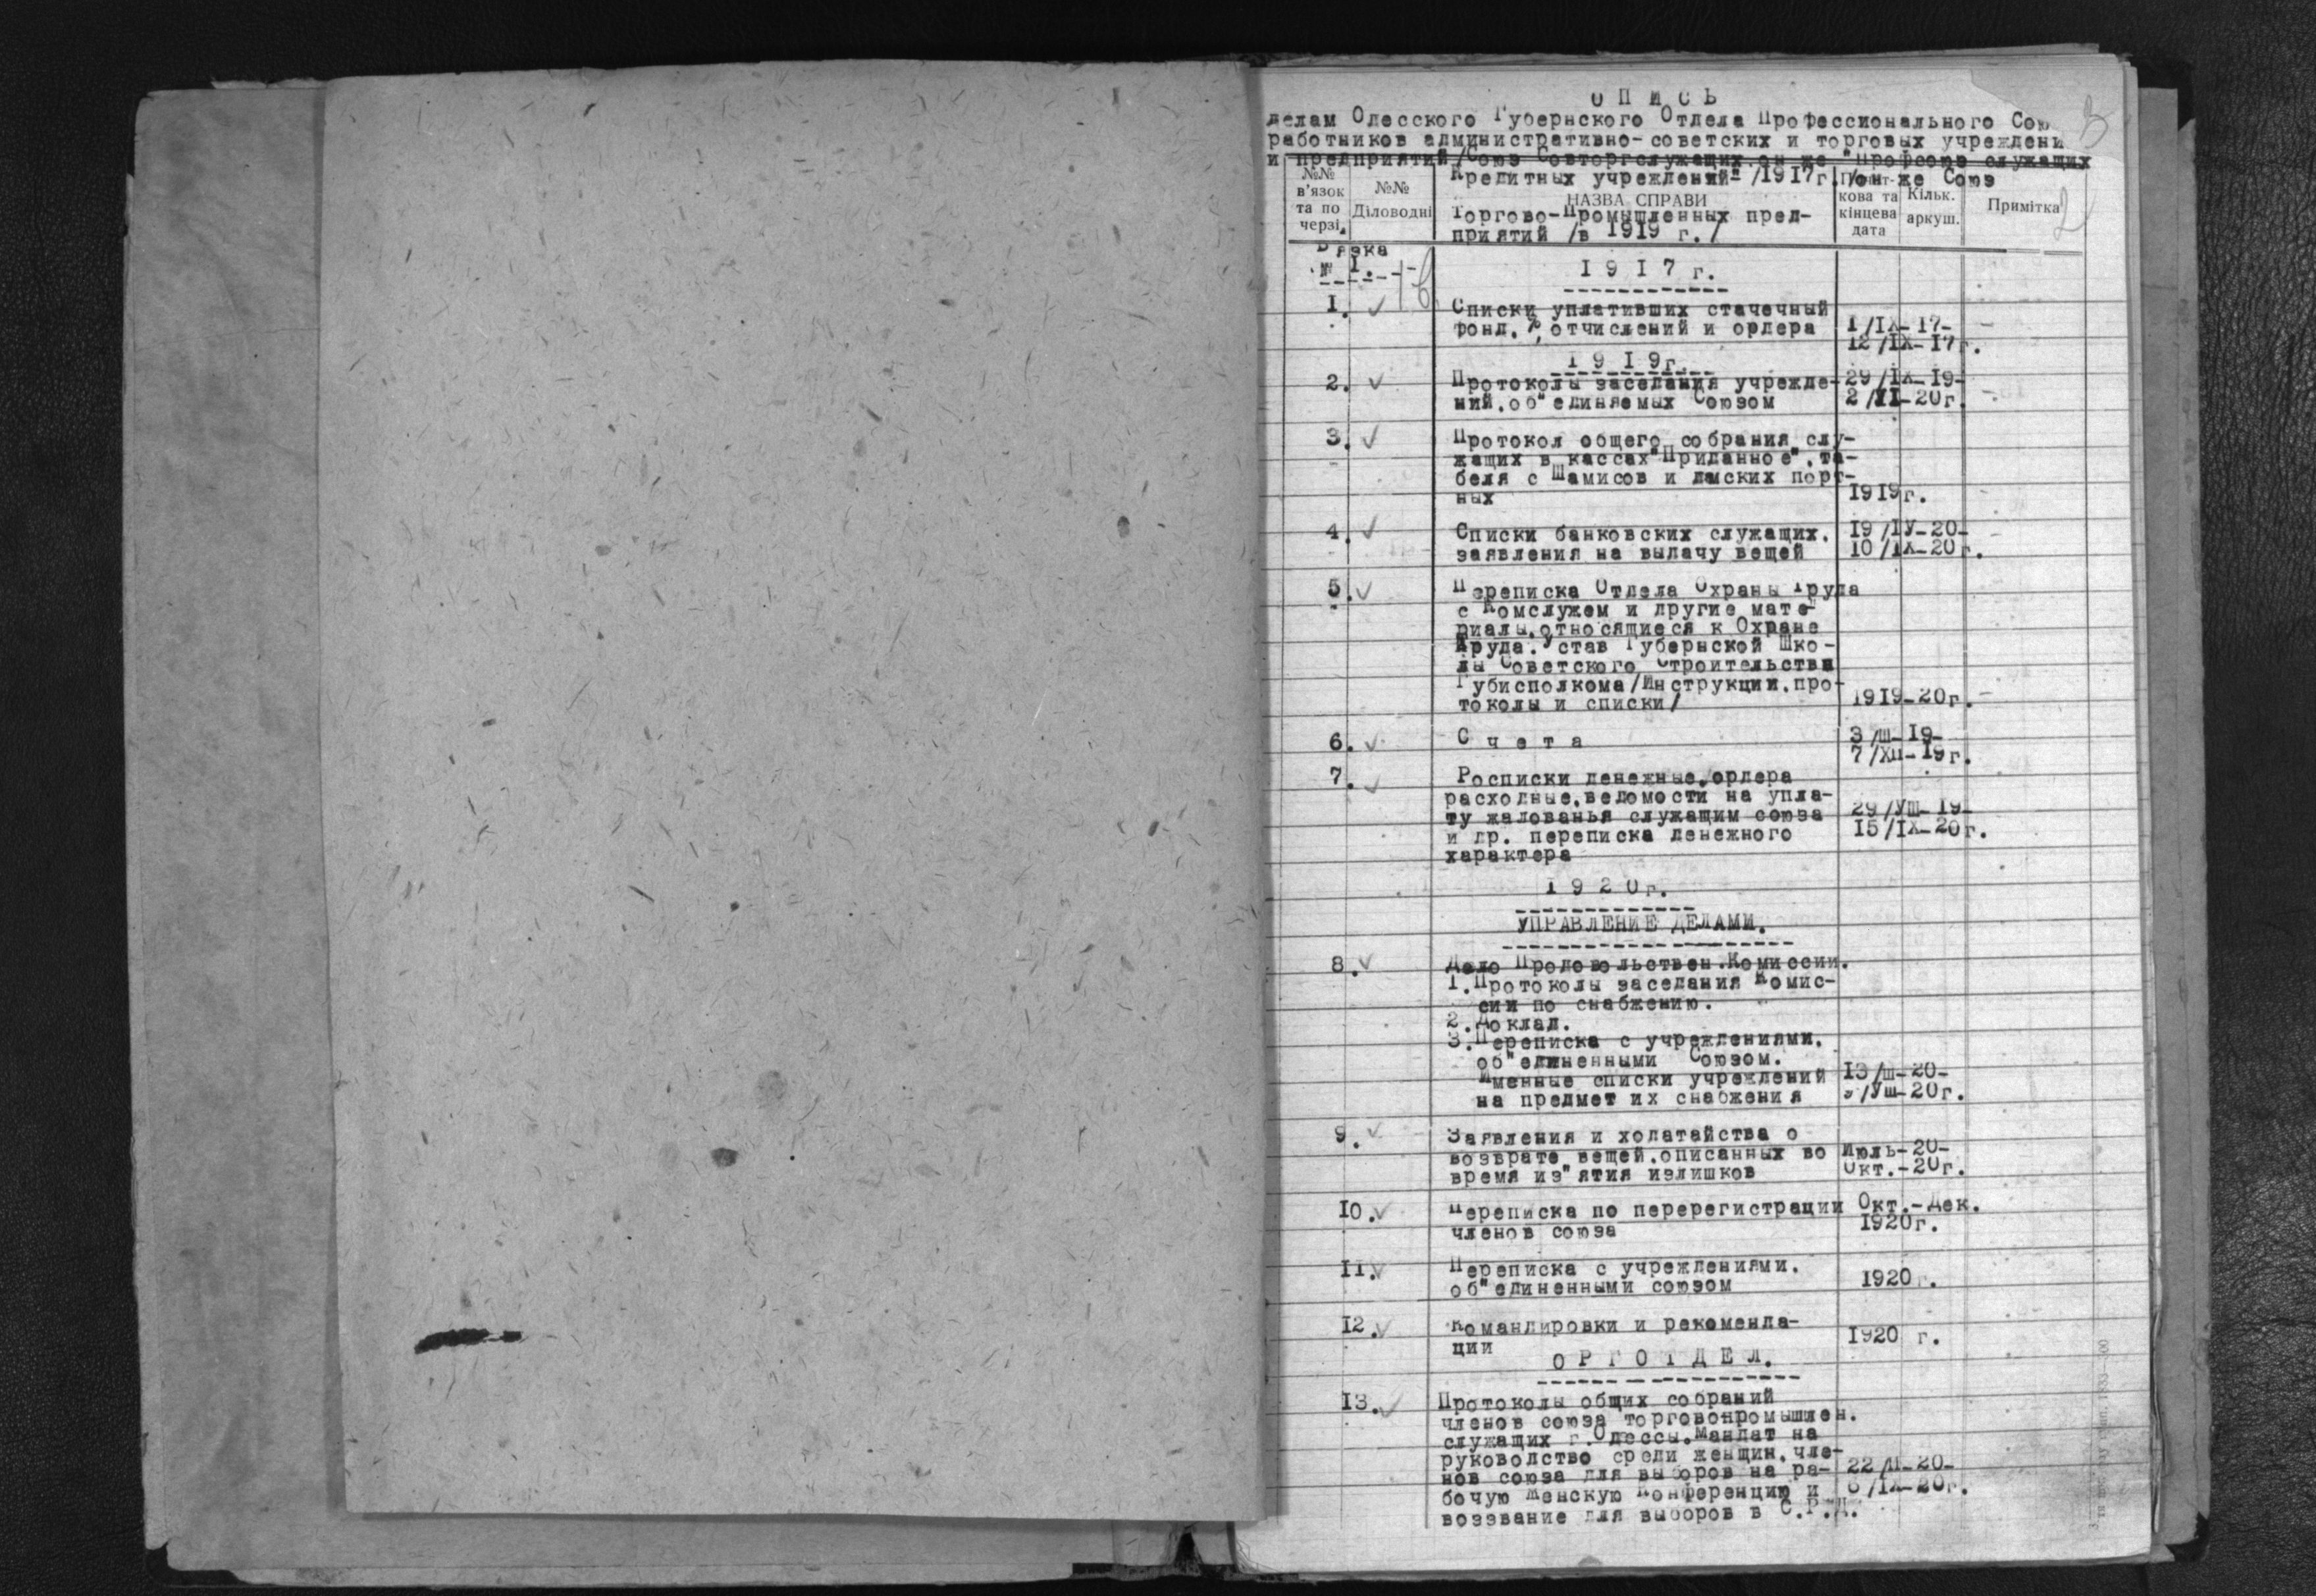 ОПИСЬ
делам Одесского Губернского Отдела Профессионального Сою
работников административно-советских и торговых учреждени
и предприятий /Союз Совторгслужащих он же "Профсоюз служащих
Кредитных учреждений" /1917г. /он же Союз
Торгово-Промышленных пред-
приятий /в 1919 г./
№№ в'язок та по черзі
№№ Діловодні
НАЗВА СПРАВИ
кова та кінцева дата
Кільк. аркуш.
Примітка
2
Вязка
№ 1.
1917 г.
1. Списки уплативших стачечный
фонд, % отчислений и ордера
1/IX-17-
12/IX-17г.
1919г.
2. Протоколы заседания учрежде-
ний, об"единяемых Союзом
29/IX-19-
2/XI-20г.
3. Протокол общего собрания слу-
жащих в кассах "Приданное", та-
беля с Шамисов и дамских порт-
ных
1919г.
4. Списки банковских служащих,
заявления на выдачу вещей
19/IУ-20-
10/IX-20г.
5. Переписка Отдела Охраны Труда
с Комслужем и другие мате-
риалы, относящиеся к Охране
Труда. Устав Губернской Шко-
лы Советского Строительства
Губисполкома /Инструкции, про-
токолы и списки/
1919-20г.
6. Счета
3/Ш-19-
7/ХП-19г.
7. Росписки денежные, ордера
расходные, ведомости на упла-
ту жалованья служащим союза
и др. переписка денежного
характера
29/УШ-19-
15/IX-20г.
1920г.
УПРАВЛЕНИЕ ДЕЛАМИ.
8. Дело Продовольствен. Комиссии.
1. Протоколы заседания Комис-
сии по снабжению.
2. Доклад.
3. Переписка с учреждениями,
об"единенными Союзом.
Именные списки учреждений
на предмет их снабжения
13/Ш-20-
/УШ-20г.
9. Заявления и ходатайства о
возврате вещей, описанных во
время из"ятия излишков
Июль-20-
Окт.-20г.
10. Переписка по перерегистрации
членов союза
Окт.-Дек.
1920г.
11. Переписка с учреждениями,
об"единенными союзом
1920г.
12. Командировки и рекоменда-
ции
1920 г.
ОРГОТДЕЛ.
13. Протоколы общих собраний
членов союза торговопромышлен.
служащих г. Одессы. Мандат на
руководство среди женщин, чле-
нов союза для выборов на ра-
бочую Женскую Конференцию и
воззвание для выборов в С.Р.Д.
22/П-20-
6/IX-20г.